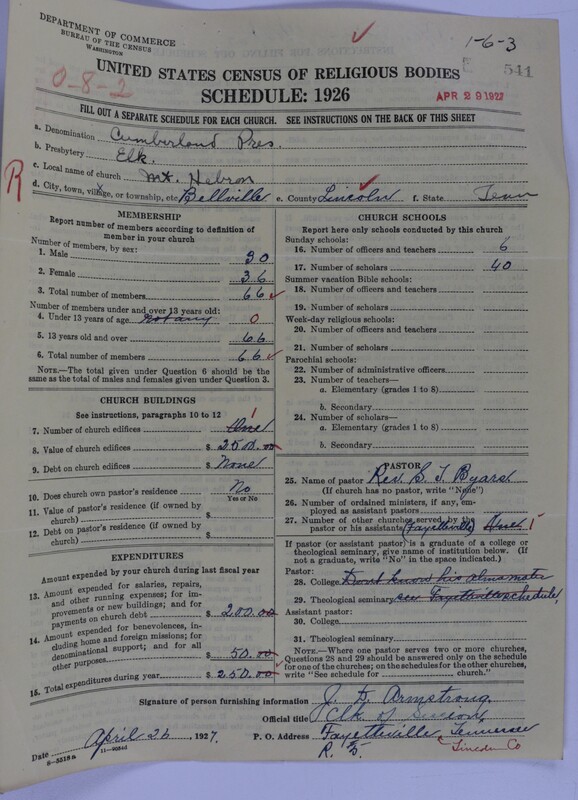 DEPARTMENT OF COMMERCE
BUREAU OF THE CENSUS
WASHINGTON
1-6-3
0-8-2
UNITED STATES CENSUS OF RELIGIOUS BODIES
541
SCHEDULE: 1926
APR 29 1927
FILL OUT A SEPARATE SCHEDULE FOR EACH CHURCH. SEE INSTRUCTIONS ON THE BACK OF THIS SHEET
a. Denomination Cumberland Pres.
b. Presbytery Elk.
c. Local name of church Mt. Hebron
R
d. City, town, village, or township, etc Bellville e. County Lincoln f. State Tenn
MEMBERSHIP
Report number of members according to definition of
member in your church
Number of members, by sex:
1. Male 30
2. Female 36
3. Total number of members 66
Number of members under and over 13 years old:
4. Under 13 years of age not any 0
5. 13 years old and over 66
6. Total number of members 66
NOTE.—The total given under Question 6 should be
the same as the total of males and females given under Question 3.
CHURCH BUILDINGS
See instructions, paragraphs 10 to 12
7. Number of church edifices One 1
8. Value of church edifices $ 2500.00
9. Debt on church edifices $ None
10. Does church own pastor's residence No
Yes or No
11. Value of pastor's residence (if owned by
church) $
12. Debt on pastor's residence (if owned by
church) $
EXPENDITURES
Amount expended by your church during last fiscal year
13. Amount expended for salaries, repairs,
and other running expenses; for im-
provements or new buildings; and for
payments on church debt $ 200.00
14. Amount expended for benevolences, in-
cluding home and foreign missions; for
denominational support; and for all
other purposes $ 50.00
15. Total expenditures during year $ 250.00
CHURCH SCHOOLS
Report here only schools conducted by this church
Sunday schools:
16. Number of officers and teachers 6
17. Number of scholars 40
Summer vacation Bible schools:
18. Number of officers and teachers
19. Number of scholars
Week-day religious schools:
20. Number of officers and teachers
21. Number of scholars
Parochial schools:
22. Number of administrative officers
23. Number of teachers—
a. Elementary (grades 1 to 8)
b. Secondary
24. Number of scholars—
a. Elementary (grades 1 to 8)
b. Secondary
PASTOR
25. Name of pastor Rev. S. T. Byars
(If church has no pastor, write "None")
26. Number of ordained ministers, if any, em-
ployed as assistant pastors
27. Number of other churches served by the
pastor or his assistants (Fayetteville) One 1
If pastor (or assistant pastor) is a graduate of a college or
theological seminary, give name of institution below. (If
not a graduate, write "No" in the space indicated.)
Pastor:
28. College Dont know his almamater
29. Theological seminary see Fayetteville schedule,
Assistant pastor:
30. College
31. Theological seminary
NOTE.—Where one pastor serves two or more churches,
Questions 28 and 29 should be answered only on the schedule
for one of the churches; on the schedules for the other churches,
write "See schedule for church."
Signature of person furnishing information J. D. Armstrong.
Official title Clk of Session,
Date April 26, 1927. P. O. Address Fayetteville, Tennessee
R. 5. Lincoln Co